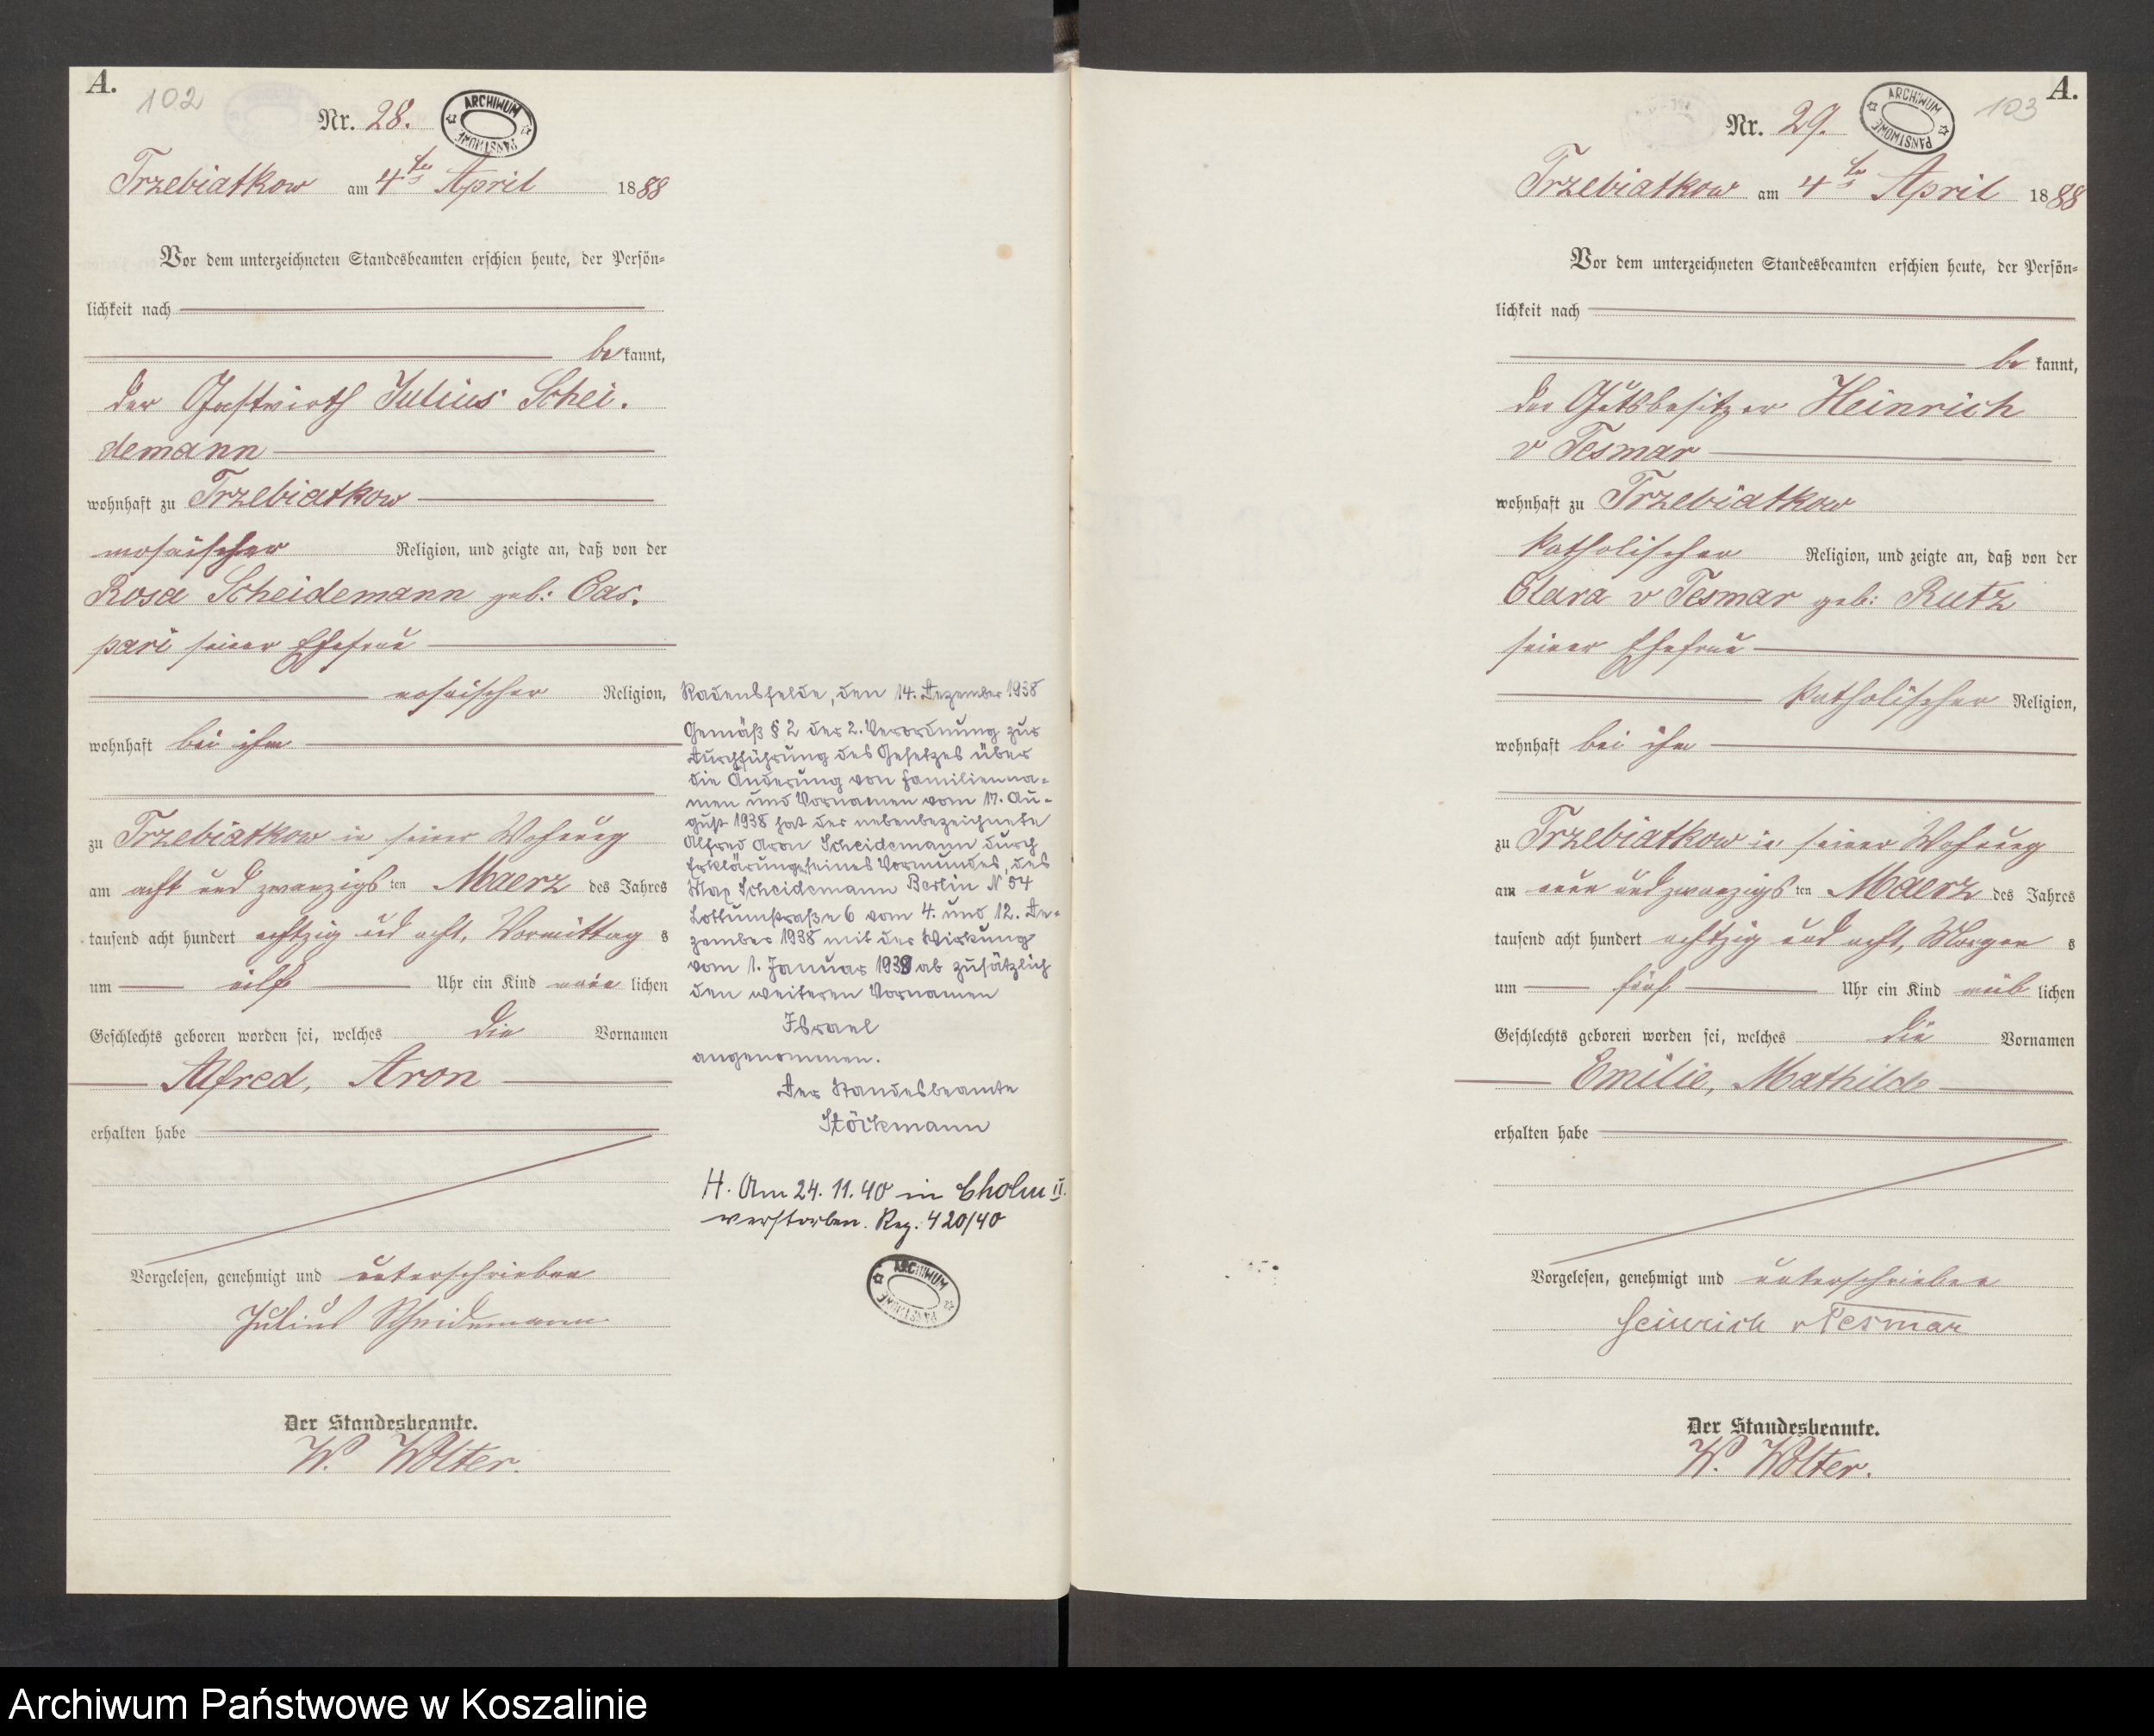 A.
102
Nr. 28.
ARCHIWUM PAŃSTWOWE
Trzebiatkow am 4ten April 1888
Vor dem unterzeichneten Standesbeamten erschien heute, der Persön-
lichkeit nach
bekannt,
der Gastwirth Julius Schei.
demann
wohnhaft zu Trzebiatkow
mosaischer Religion, und zeigte an, daß von der
Rosa Scheidemann geb: Cas.
pari seiner Ehefrau
mosaischer Religion,
wohnhaft bei ihm
zu Trzebiatkow in seiner Wohnung
am acht und zwanzigsten Maerz des Jahres
tausend acht hundert achtzig und acht, Vormittags
um eilf Uhr ein Kind männlichen
Geschlechts geboren worden sei, welches die Vornamen
Alfred, Aron
erhalten habe
Vorgelesen, genehmigt und unterschrieben
Julius Scheidemann
Der Standesbeamte.
W. Wolter.
Radensfelde, den 14. Dezember 1938
Gemäß § 2 der 2. Verordnung zur
Durchführung des Gesetzes über
die Änderung von Familienna-
men und Vornamen vom 17. Au-
gust 1938 hat der nebenbezeichnete
Alfred Aron Scheidemann durch
Erklärung seines Vormundes, des
Max Scheidemann Berlin N 54
Lottumstraße 6 vom 4. und 12. De-
zember 1938 mit der Wirkung
vom 1. Januar 1939 ab zusätzlich
den weiteren Vornamen
Israel
angenommen.
Der Standesbeamte
Stöckmann
H. Am 24. 11. 40 in Cholm II.
verstorben. Reg. 420/40
ARCHIWUM PAŃSTWOWE
A.
103
Nr. 29.
ARCHIWUM PAŃSTWOWE
Trzebiatkow am 4ten April 1888
Vor dem unterzeichneten Standesbeamten erschien heute, der Persön-
lichkeit nach
bekannt,
der Gutsbesitzer Heinrich
v Tesmar
wohnhaft zu Trzebiatkow
katholischer Religion, und zeigte an, daß von der
Clara v Tesmar geb: Rutz
seiner Ehefrau
katholischer Religion,
wohnhaft bei ihm
zu Trzebiatkow in seiner Wohnung
am neun und zwanzigsten Maerz des Jahres
tausend acht hundert achtzig und acht, Morgens
um fünf Uhr ein Kind weiblichen
Geschlechts geboren worden sei, welches die Vornamen
Emilie, Mathilde
erhalten habe
Vorgelesen, genehmigt und unterschrieben
Heinrich v Tesmar
Der Standesbeamte.
W. Wolter.
Archiwum Państwowe w Koszalinie